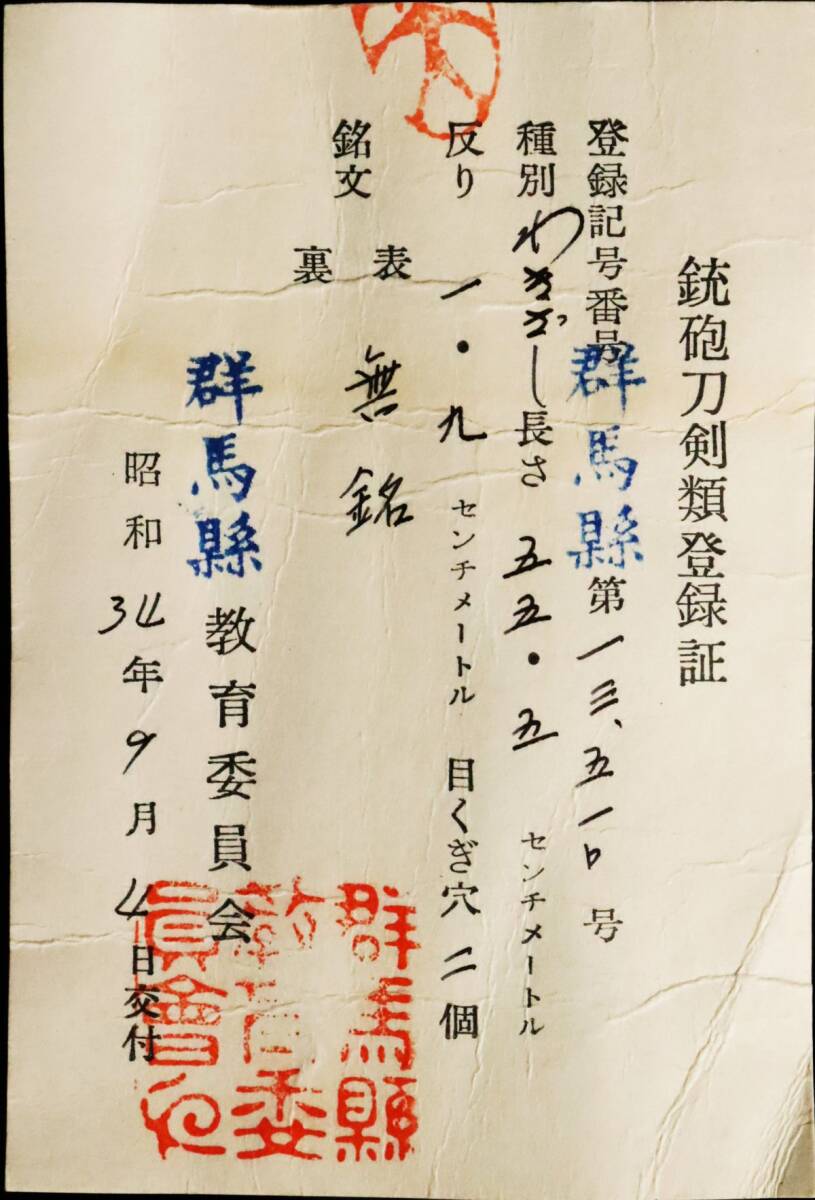 銃砲刀剣類登録証
登録記号番号 群馬縣 第一三、五一〇号
種別 わきざし 長さ 五五・五 センチメートル
反り 一・九 センチメートル 目くぎ穴 二 個
銘文 表 無銘
裏
群馬縣教育委員会
昭和34年9月4日交付
群馬縣
教育委
員會印